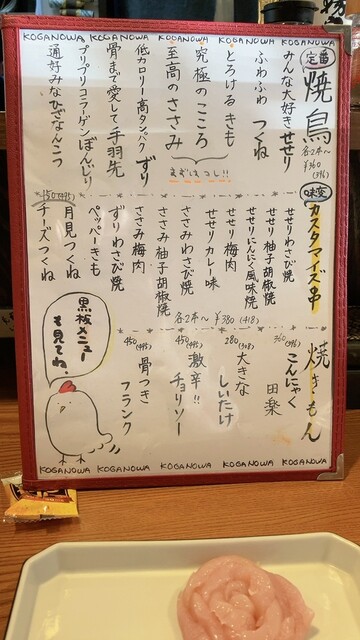 KOGANOWA KOGANOWA KOGANOWA KOGANOWA KOGANOWA
定番 焼鳥
各2本〜 ¥360 (396)
みんな大好きせせり
ふわふわ つくね
とろけるきも
究極のこころ
至高のささみ
まずはコレ!!
低カロリー高タンパクずり
骨まで愛して手羽先
プリプリコラーゲンぼんじり
通好みなひざなんこつ
味変 カスタマイズ串
せせりわさび焼
せせり柚子胡椒焼
せせりにんにく風味焼
せせり梅肉
せせりカレー味
各2本〜 ¥380 (418)
ささみわさび焼
ささみ柚子胡椒焼
ささみ梅肉
ずりわさび焼
ペッペーきも
月見つくね
チーズつくね
焼きもん
360 (396)
こんにゃく田楽
280 (308)
大きなしいたけ
450 (495)
激辛!!チョリソー
450 (495)
骨つきフランク
黒板メニューも見てね。
KOGANOWA KOGANOWA KOGANOWA KOGANOWA KOGANOWA